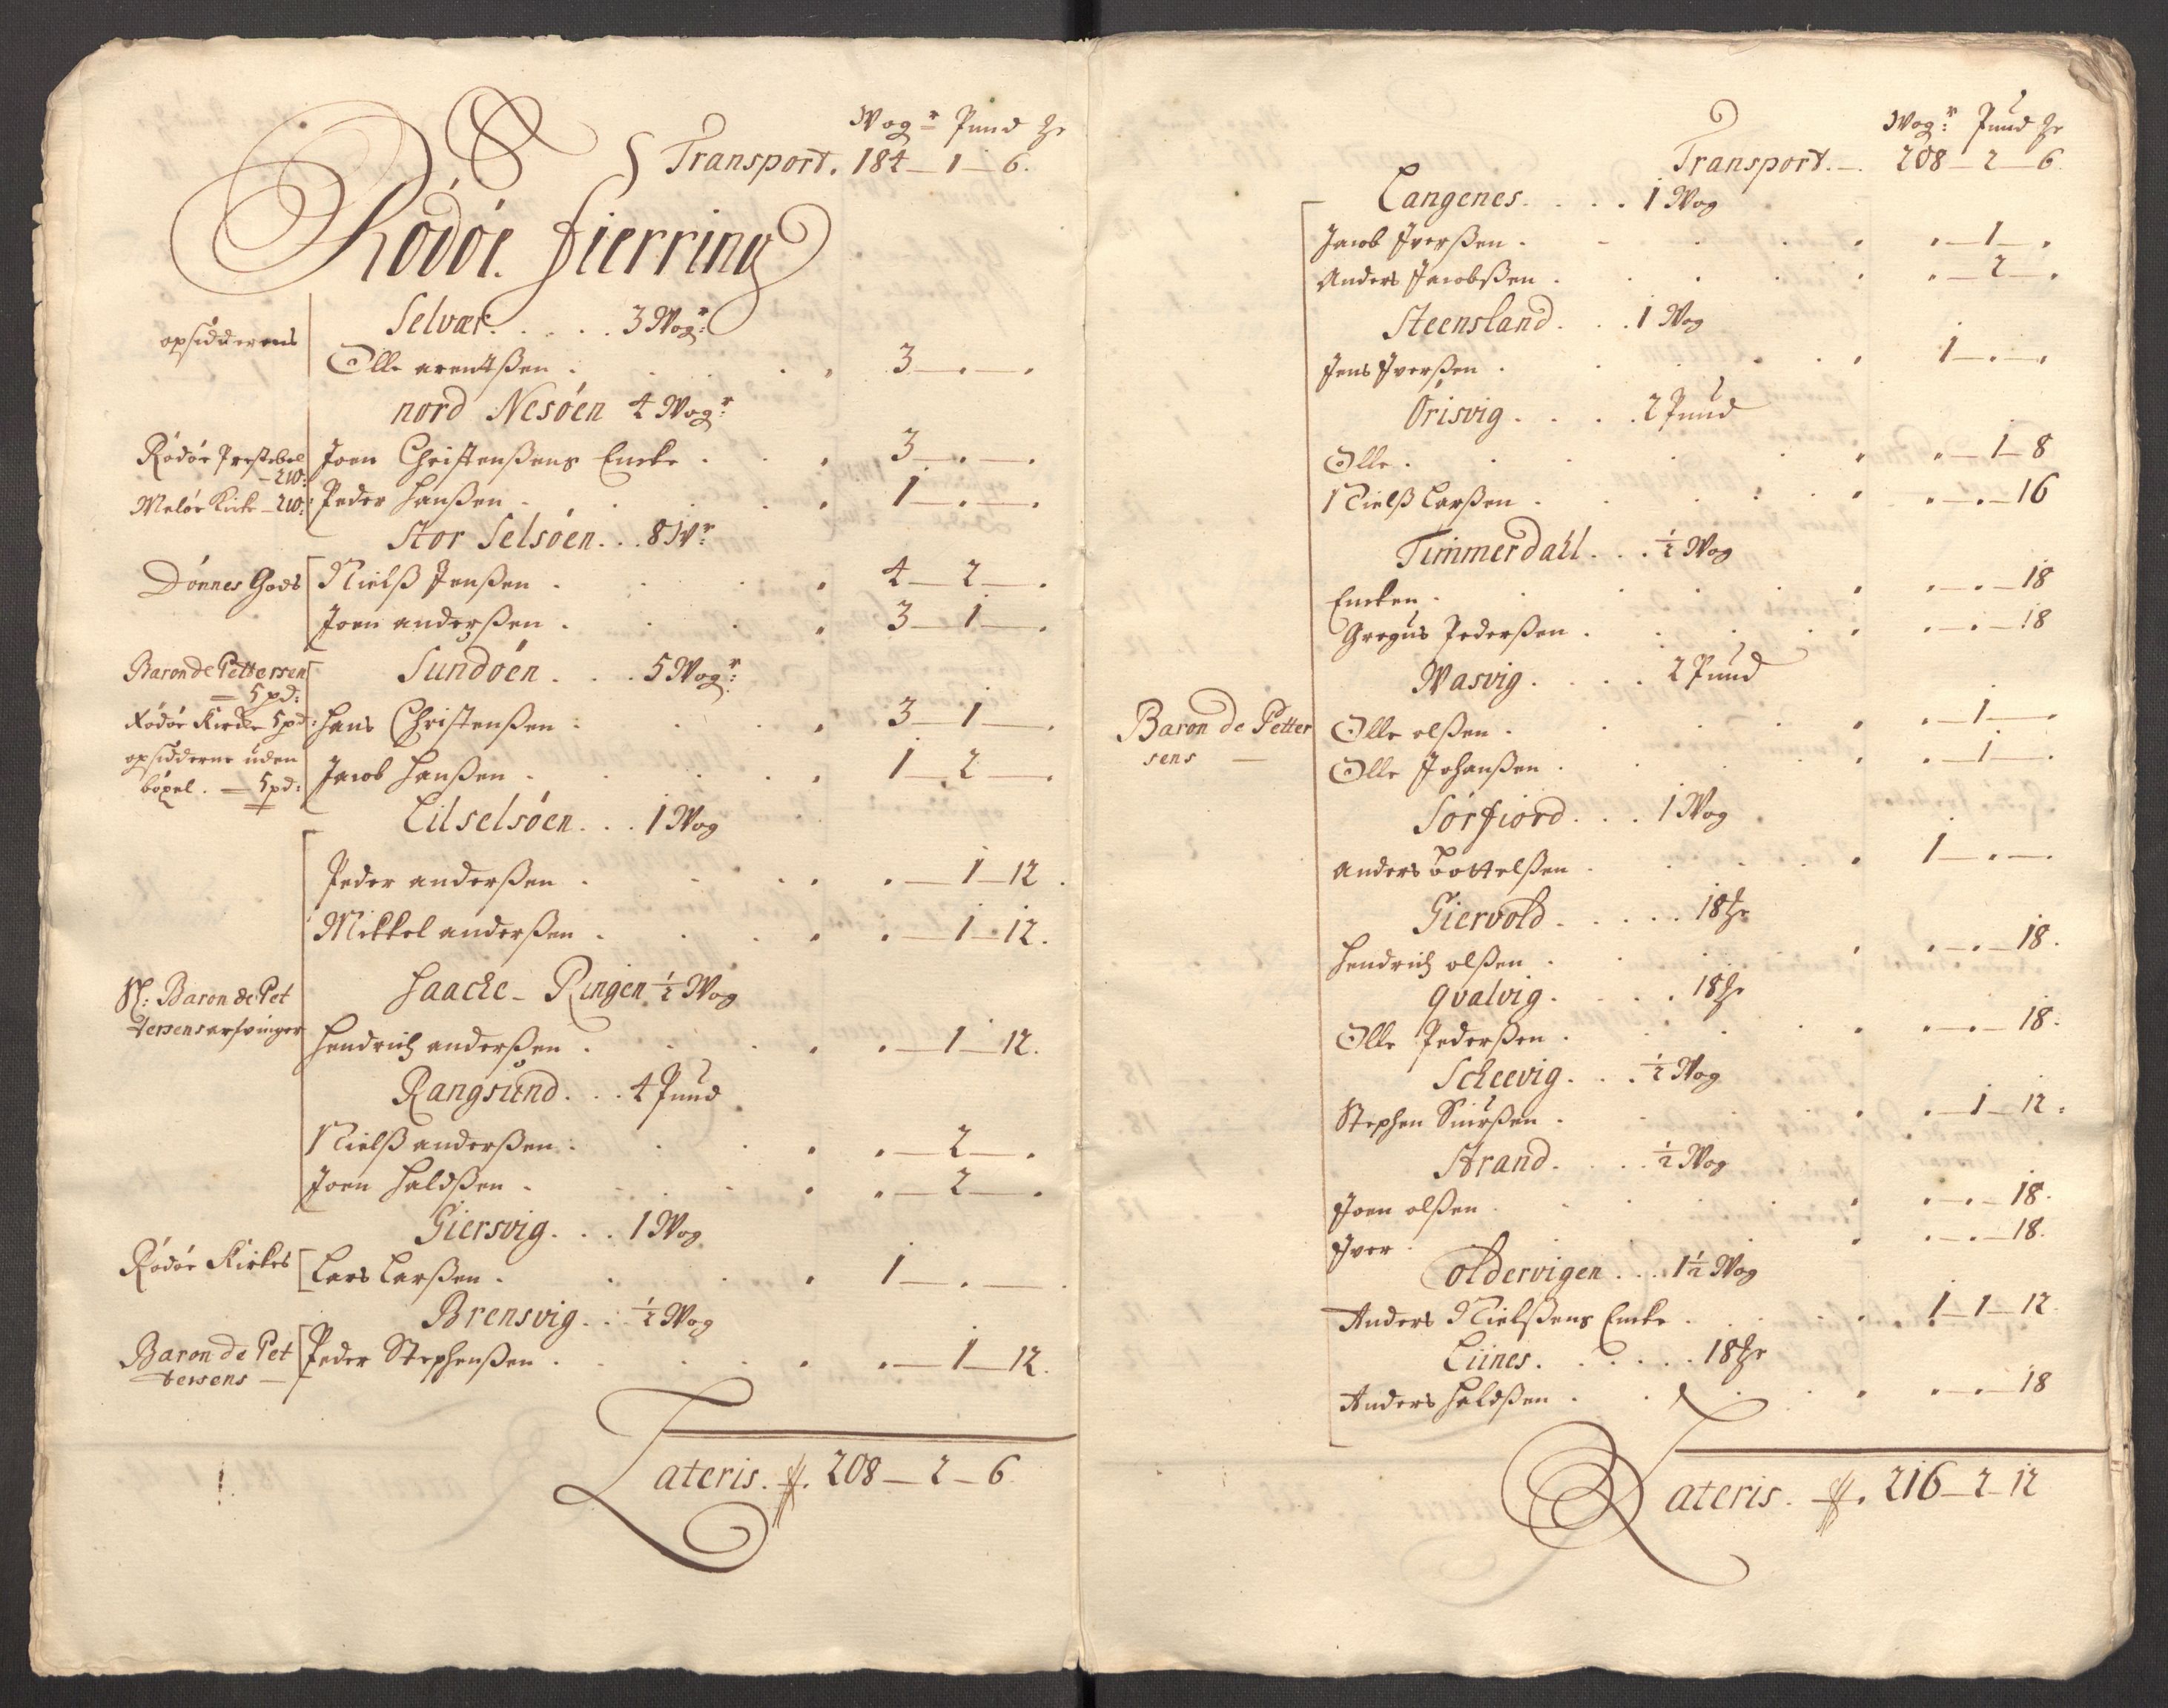 Wog:r Pund
Transport. 184 – 1 – 6.
Rodøe fierring
Selvær. . . . . 3 Wog:r
opsidderens
Olle arentsßen . . . 3 – . – .
nord Nesøen 4 Wog:r
Rødøe Prestebol – 2 W:
Joen Christenßens Encke . . . 3 – . – .
Meløe Kirke – 2 W:
Peder Hanßen . . . 1 – . – .
Stor Selsøen. . . 8 W:r
Dønnes Gods
Nielß Jenßen . . . 4 – 2 – .
Joen anderßen . . . 3 – 1 – .
Baron de Pettersen – 5 pd:
Sundøen . . . 5 Wog:r
Rødøe Kircke 5 pd:
Hans Christenßen . . . 3 – 1 – .
opsidderne uden
bøxel. – 5 pd:
Jacob Hanßen . . . 1 – 2 – .
Lilselsøen . . . 1 Wog
Peder anderßen . . . . – 1 – 12.
Mikkel anderßen . . . . – 1 – 12.
Sl: Baron de Pet
tersens arfvinger
Haacke – Ringen ½ Wog
Hendrich anderßen . . . . – 1 – 12.
Rangsund. . . 4 Pund
Nielß anderßen . . . . – 2 – .
Joen Haldßen . . . . – 2 – .
Giersvig. . . 1 Wog
Rødøe Kirkes
Lars Larßen . . . 1 – . – .
Brensvig. . . ½ Wog
Baron de Pet
tersens –
Peder Stephenßen . . . . – 1 – 12.
Lateris. 208 – 2 – 6
Wog:r Pund
Transport. – 208 – 2 – 6.
Langenes. . . . 1 Wog
Jacob Iverßen . . . . – 1 – .
Anders Jacobßen . . . . – 2 – .
Steensland. . . 1 Wog
Jens Iverßen . . . 1 – . – .
Orisvig. . . . 2 Pund
Olle . . . . – 1 – 8
Nielß Larßen . . . . – . – 16
Timmerdall. . . ½ Wog
Encken . . . . – . – 18
Gregus Pederßen . . . . – . – 18
Wasvig . . . . 2 Pund
Baron de Petter
sens –
Olle olßen . . . . – 1 – .
Olle Johanßen . . . . – 1 – .
Sørfiord. . . 1 Wog
Anders Bottelßen . . . 1 – . – .
Giervold . . . . . 18
Hendrich olßen . . . . – . – 18.
Qvalvig. . . . . 18
Olle Pederßen . . . . – . – 18.
Scheevig. . . ½ Wog
Stephen Siurßen . . . . – 1 – 12.
Strand. . . . ½ Wog
Joen olßen . . . . – . – 18.
Iver . . . . – . – 18.
oldervigen . . . 1½ Wog
Anders Nielßens Encke . . . 1 – 1 – 12.
Liines. . . . . . 18
Anders Haldßen . . . . – . – 18
Lateris. 216 – 2 – 12